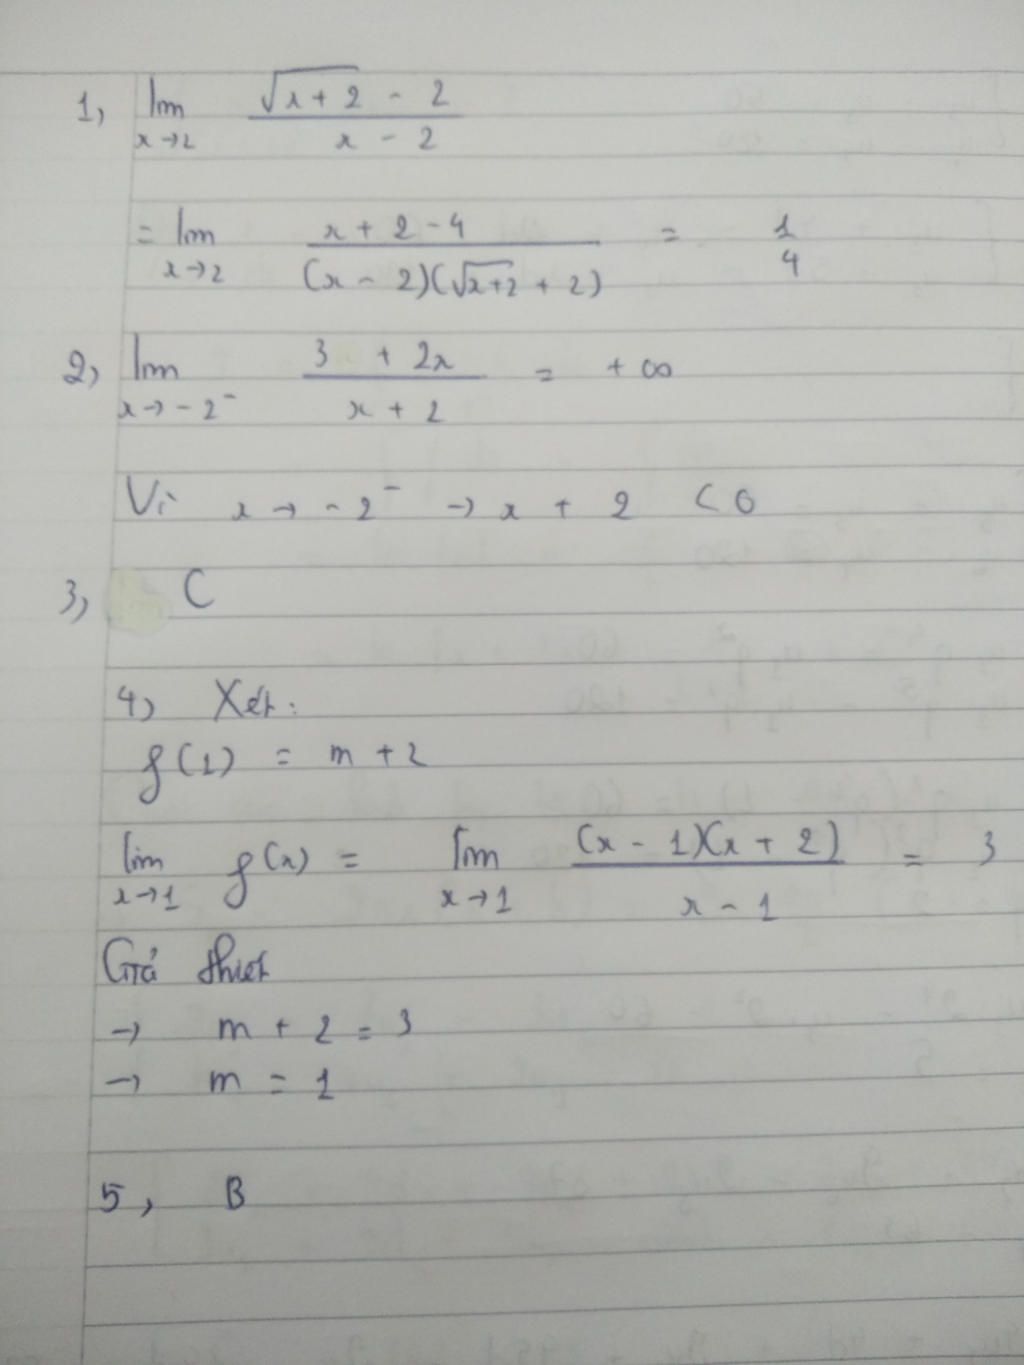 1, lim x→2 √(x+2) - 2 / x - 2
= lim x→2 x + 2 - 4 / (x - 2)(√(x+2) + 2) = 1/4
2, lim x→-2⁻ 3 + 2x / x + 2 = +∞
Vì x → -2⁻ → x + 2 < 0
3, C
4, Xét:
f(1) = m + 2
lim x→1 f(x) = lim x→1 (x - 1)(x + 2) / x - 1 = 3
Giả thiết
→ m + 2 = 3
→ m = 1
5, B